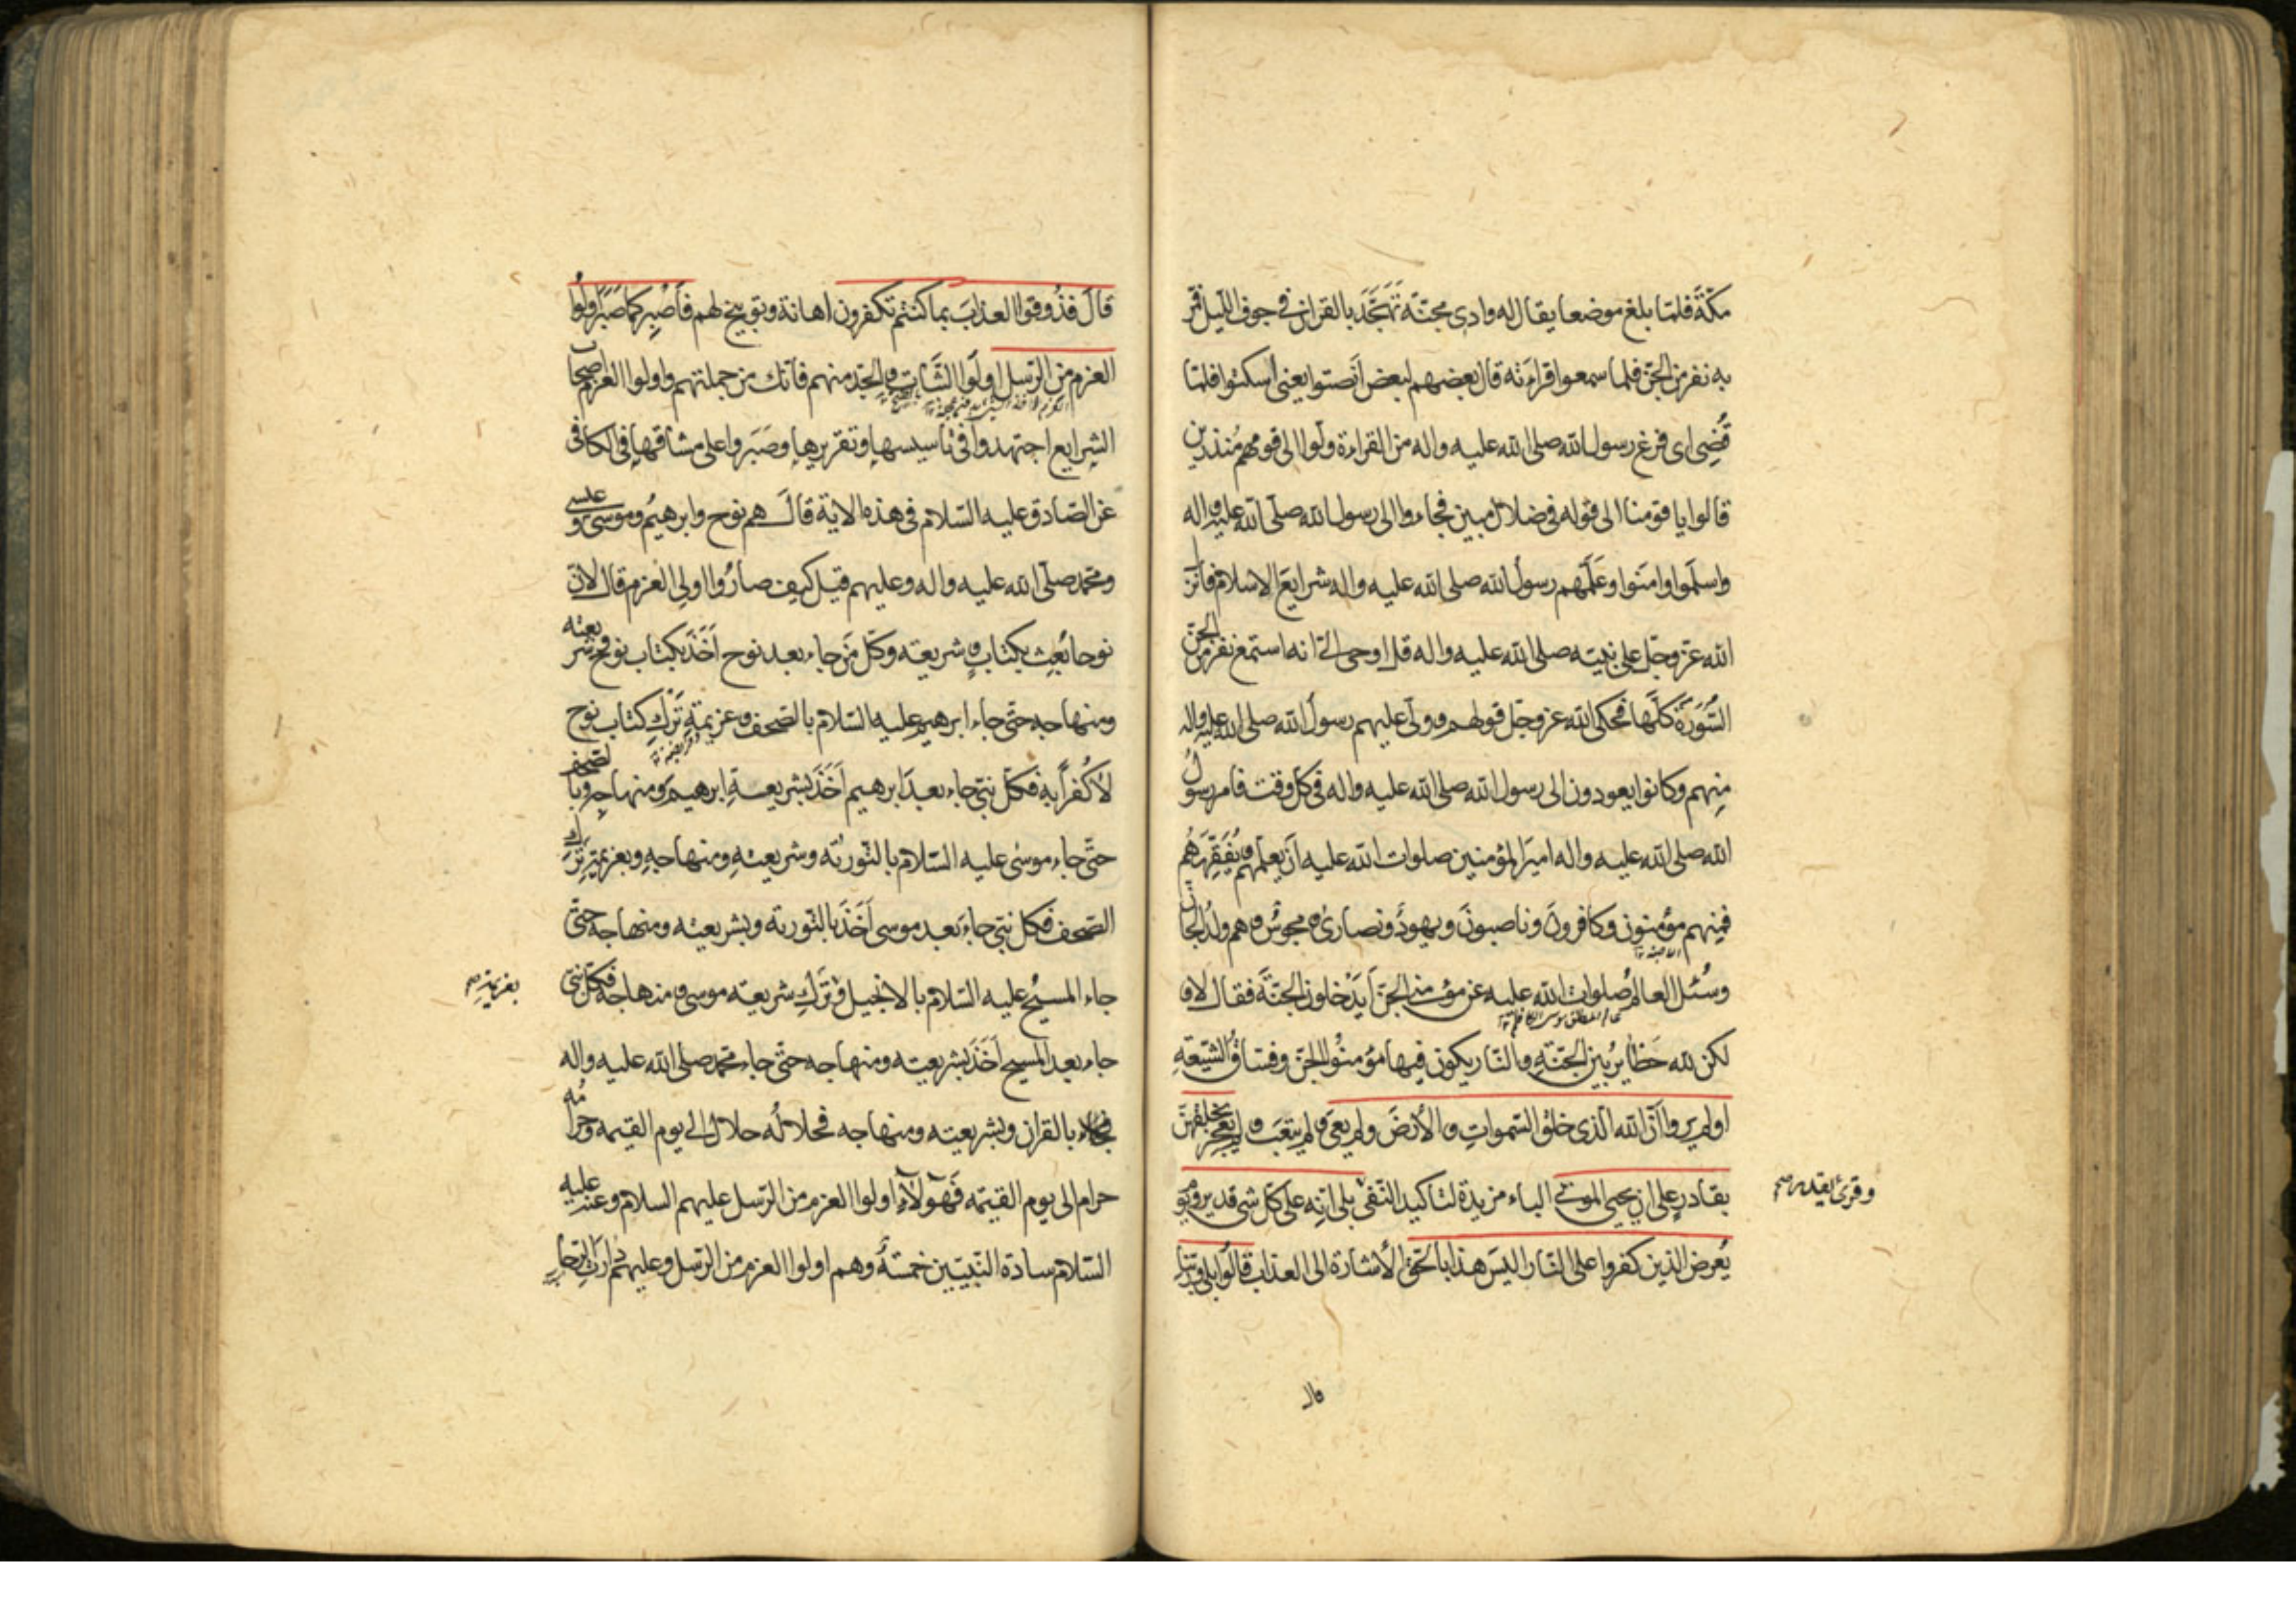 مكّة فلمّا بلغ موضعا يقال له وادى مجنّة تَهَجَّدَ بالقران في جوف اللّيل فمرّ
به نفر من الجنّ فلما سمعوا قراءته قال بعضهم لبعض انصتوا يعنى اسكتوا فلمّا
قُضِى اى فرغ رسول الله صلى الله عليه واله من القراءة ولّوا الى قومهم مُنذرين
قالوا يا قومنا الى قوله فى ضلال مبين فجاءوا الى رسول الله صلّى الله عليه واله
واسلَموا وامَنوا وعَلَّمهم رسولُ الله صلى الله عليه واله شرايعَ الاسلام فانزل
الله عزّ وجلّ على نبيّه صلى الله عليه واله قل اوحى الىّ انه استمع نفر من الجنّ
السُّورَةَ كلَّها فحكى الله عز وجلّ قولهم وولّى عليهم رسولُ الله صلى الله عليه واله
مِنهم وكانوا يعودون الى رسول الله صلى الله عليه واله فى كل وقت فامر رسولُ
الله صلى الله عليه واله اميرَ المؤمنين صلوات الله عليه اَن يعلّمهم ويُفَقِّهَهُم
فمِنهم مؤمنون وكافرونَ وناصبونَ ويهودٌ ونصارىٰ ومجوسٌ وهم ولدُ الجانّ
وسُئل العالمُ صلوات الله عليه عن مؤمنى الجنّ اَيَدْخلون الجنّةَ فقال لا و
لكن لله حَظايرُ بين الجنّةِ والنّار يكون فيها مؤمنُوا الجنّ وفسّاقُ الشّيعةِ
اولم يروا اَنّ الله الّذى خلق السّموات والأرضَ ولم يعىَ ولم يتعَب ولم يعجز بخلقهنّ
بقادرٍ على ان يحيى الموتى الباء مزيدة لتاكيد النّفى بلى انّه على كلّ شئ قدير ويوم
وقرئ يقدر صح
يُعرض الذين كفروا على النّار اليسَ هذا بالحقّ الأشارة الى العذاب قالُوا بلى وربّنا
قال
قالَ فذُوقوا العذابَ بما كنتم تكفرون اهانة وتوبيخ لهم فاصْبِر كما صَبَرَ اولُوا
العزم من الرّسل اولُوا الثَّبات والجدّ منهم فانّك من جملتهم واولوا العزم اصحاب
الشرايع اجتهدوا فى تاسيسها وتقريرها وصَبَروا على مشاقّها فى الكافى
عن الصّادق عليه السّلام فى هذه الاية قالَ هم نوح وابرهيمُ وموسى وعيسى
ومحمّد صلّى الله عليه واله وعليهم قيل كيف صارُوا اولى العزم قال لانّ
نوحا بُعِث بكتابٍ وشريعته وكلّ مَن جاء بعد نوح اَخَذَ بكتاب نوح وشريعته
ومنهاجه حتّى جاء ابرهيم عليه السّلام بالصّحف وعزيمةِ تَرْكِ كتاب نوح
لا كُفراً به فكلّ نبىّ جاء بعدَ ابرهيم اَخَذَ بشريعةِ ابرهيمَ ومنهاجِه وبالصّحف
حتّى جاء موسٰى عليه السّلام بالتّورٰية وشريعتهِ ومنهاجهِ وبعزيمةِ تَرْك
الصّحف فكل نبىّ جاءَ بعد موسى اَخَذَ بالتّورية وبشريعته ومنهاجه حتّى
جاء المسيحُ عليه السّلام بالانجيل وتَرْكِ شريعته موسى ومنهاجه فكلّ نبىّ
بعزيمة صح
جاء بعد المسيح اَخَذَ بشريعته ومنهاجه حتّى جاء محمّد صلى الله عليه واله
فجاء بالقران وبشريعته ومنهاجه فحلالُه حلالٌ الى يوم القيمه وحرامُه
حرام الى يوم القيمه فَهؤلآءِ اولوا العزم من الرّسل عليهم السلام وعنه عليه
السّلام سادة النّبيّين خمسةٌ وهم اولوا العزم من الرّسل وعليهم دارَتِ الرّحا